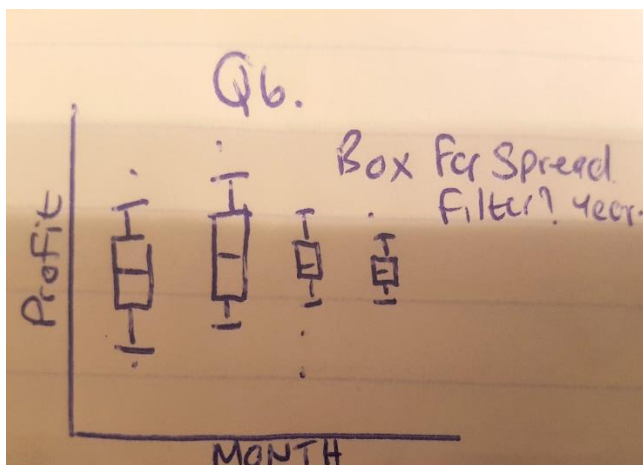 Q6.
Box For Spread
Filter? Year.
Profit
MONTH